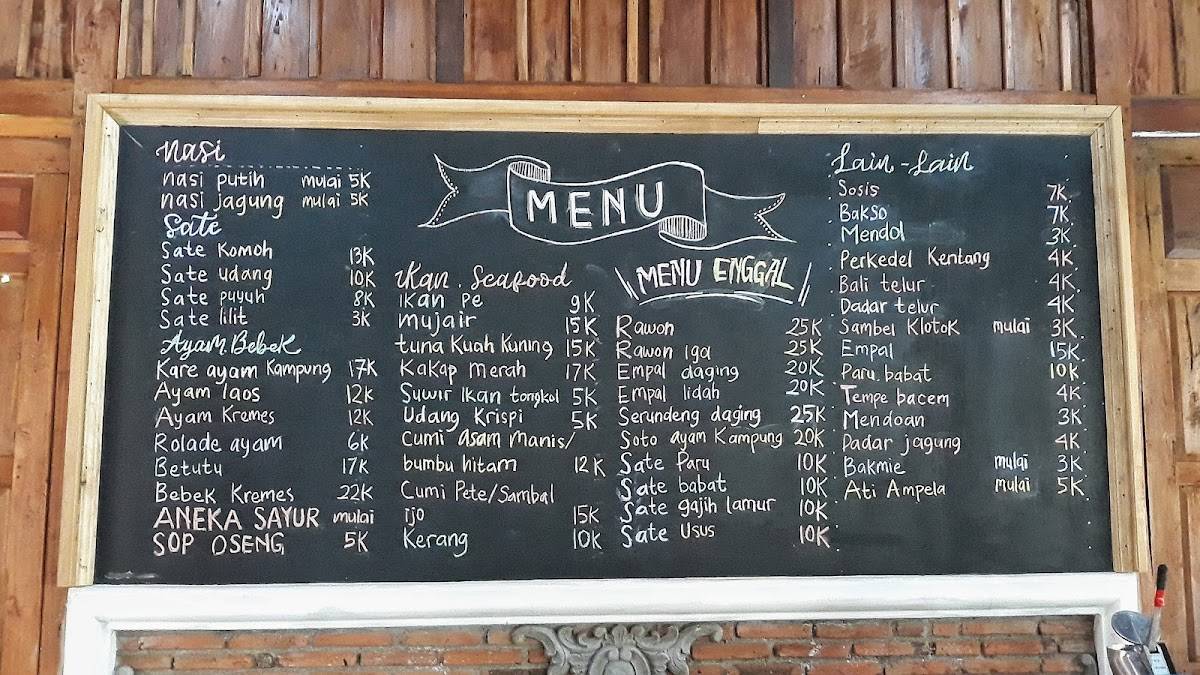 MENU
Nasi
nasi putih mulai 5K
nasi jagung mulai 5K
Sate
Sate Komoh 13K
Sate udang 10K
Sate puyuh 8K
Sate lilit 3K
Ayam, Bebek
Kare ayam Kampung 17K
Ayam laos 12K
Ayam Kremes 12K
Rolade ayam 6K
Betutu 17K
Bebek Kremes 22K
ANEKA SAYUR mulai
SOP OSENG 5K
Ikan. Seafood
Ikan Pe 9K
mujair 15K
tuna Kuah Kuning 15K
Kakap Merah 17K
Suwir Ikan tongkol 5K
Udang Krispi 5K
Cumi Asam Manis/
bumbu hitam 12K
Cumi Pete/Sambal
ijo 15K
Kerang 10K
MENU ENGGAL
Rawon 25K
Rawon iga 25K
Empal daging 20K
Empal lidah 20K
Serundeng daging 25K
Soto ayam Kampung 20K
Sate Paru 10K
Sate babat 10K
Sate gajih lamur 10K
Sate Usus 10K
Lain-Lain
Sosis 7K
Bakso 7K
Mendol 3K
Perkedel Kentang 4K
Bali telur 4K
Dadar telur 4K
Sambel Klotok mulai 3K
Empal 15K
Paru. babat 10K
Tempe bacem 4K
Mendoan 3K
Dadar jagung 4K
Bakmie mulai 3K
Ati Ampela mulai 5K